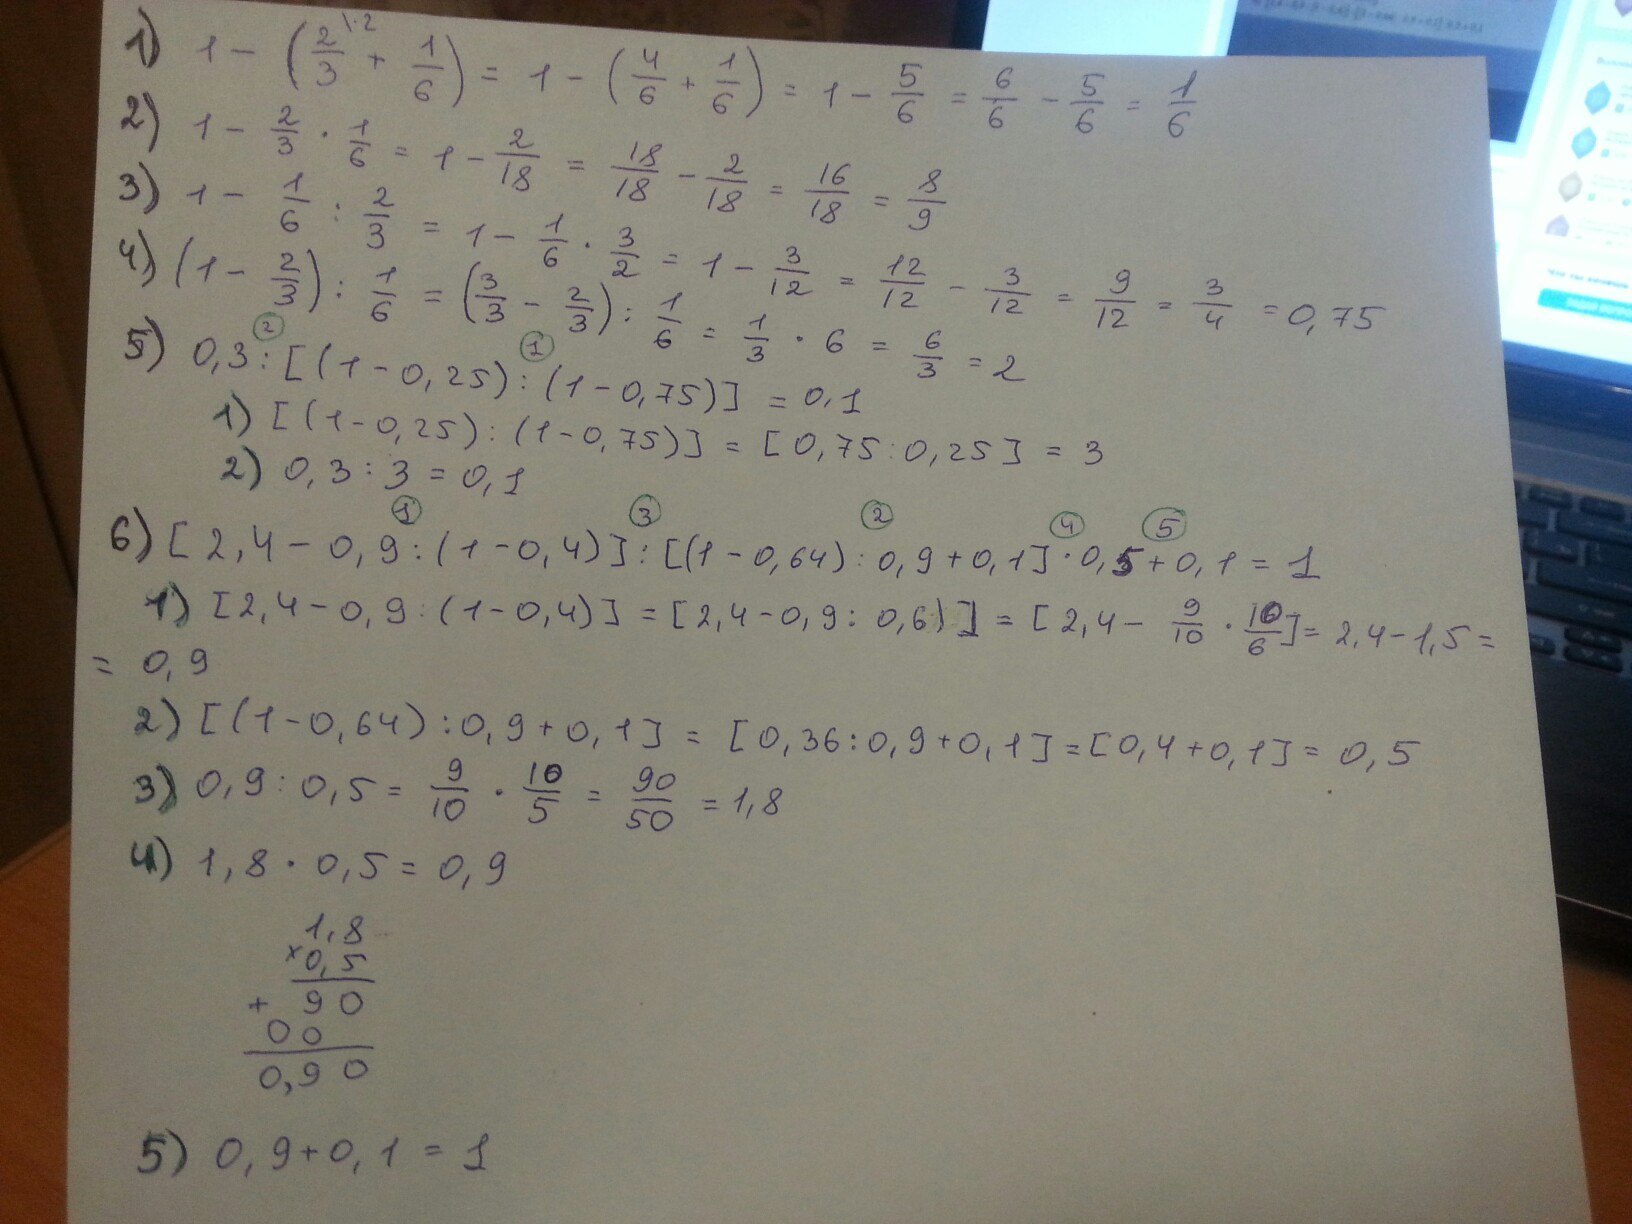 1) 1 - (2/3 \·2 + 1/6) = 1 - (4/6 + 1/6) = 1 - 5/6 = 6/6 - 5/6 = 1/6
2) 1 - 2/3 · 1/6 = 1 - 2/18 = 18/18 - 2/18 = 16/18 = 8/9
3) 1 - 1/6 : 2/3 = 1 - 1/6 · 3/2 = 1 - 3/12 = 12/12 - 3/12 = 9/12 = 3/4 = 0,75
4) (1 - 2/3) : 1/6 = (3/3 - 2/3) : 1/6 = 1/3 · 6 = 6/3 = 2
② ①
5) 0,3 : [(1 - 0,25) : (1 - 0,75)] = 0,1
1) [(1 - 0,25) : (1 - 0,75)] = [0,75 : 0,25] = 3
2) 0,3 : 3 = 0,1
① ③ ② ④ ⑤
6) [2,4 - 0,9 : (1 - 0,4)] : [(1 - 0,64) : 0,9 + 0,1] · 0,5 + 0,1 = 1
1) [2,4 - 0,9 : (1 - 0,4)] = [2,4 - 0,9 : 0,6)] = [2,4 - 9/10 · 10/6] = 2,4 - 1,5 =
= 0,9
2) [(1 - 0,64) : 0,9 + 0,1] = [0,36 : 0,9 + 0,1] = [0,4 + 0,1] = 0,5
3) 0,9 : 0,5 = 9/10 · 10/5 = 90/50 = 1,8
4) 1,8 · 0,5 = 0,9
1,8
×0,5
+ 90
00
0,90
5) 0,9 + 0,1 = 1